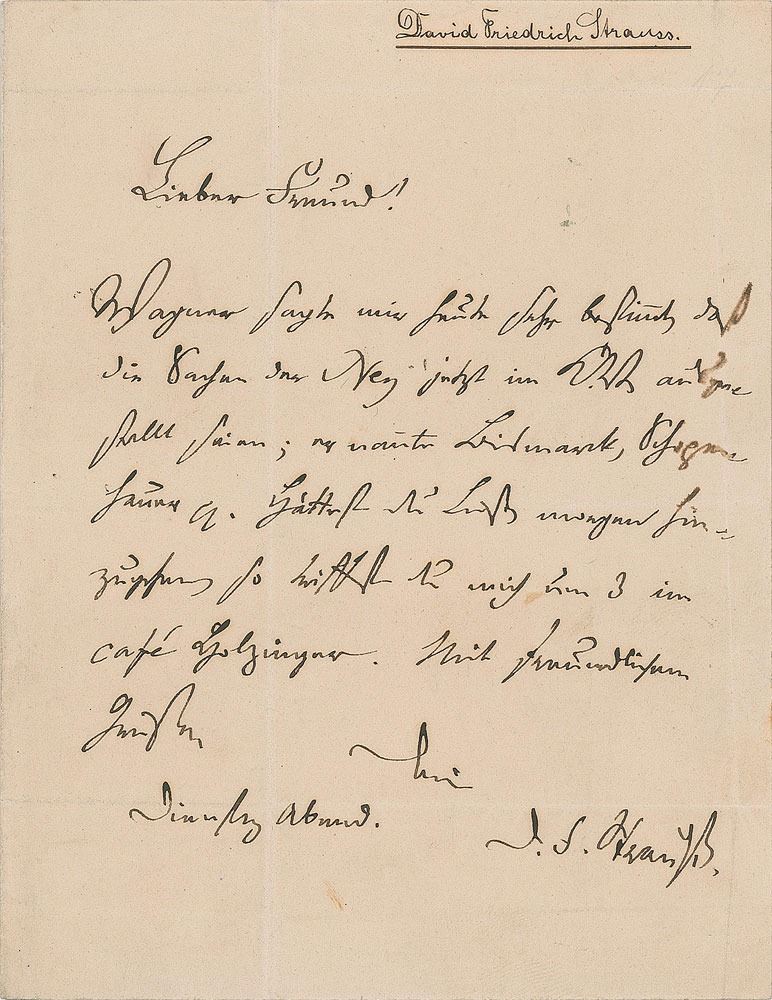 David Friedrich Strauss.
Lieber Freund!
Wagner sagte mir heute sehr bestimmt, daß
die Sachen der Ney jetzt im ausge
stellt seien; er nannte Bismarck, Schopen
hauer p. Hättest du Lust, morgen hin-
zugehen, so triffst du mich um 3 im
café Holzinger. Mit freundlichen
Grüßen
Dein
Dienstag Abend.
D. F. Strauß.